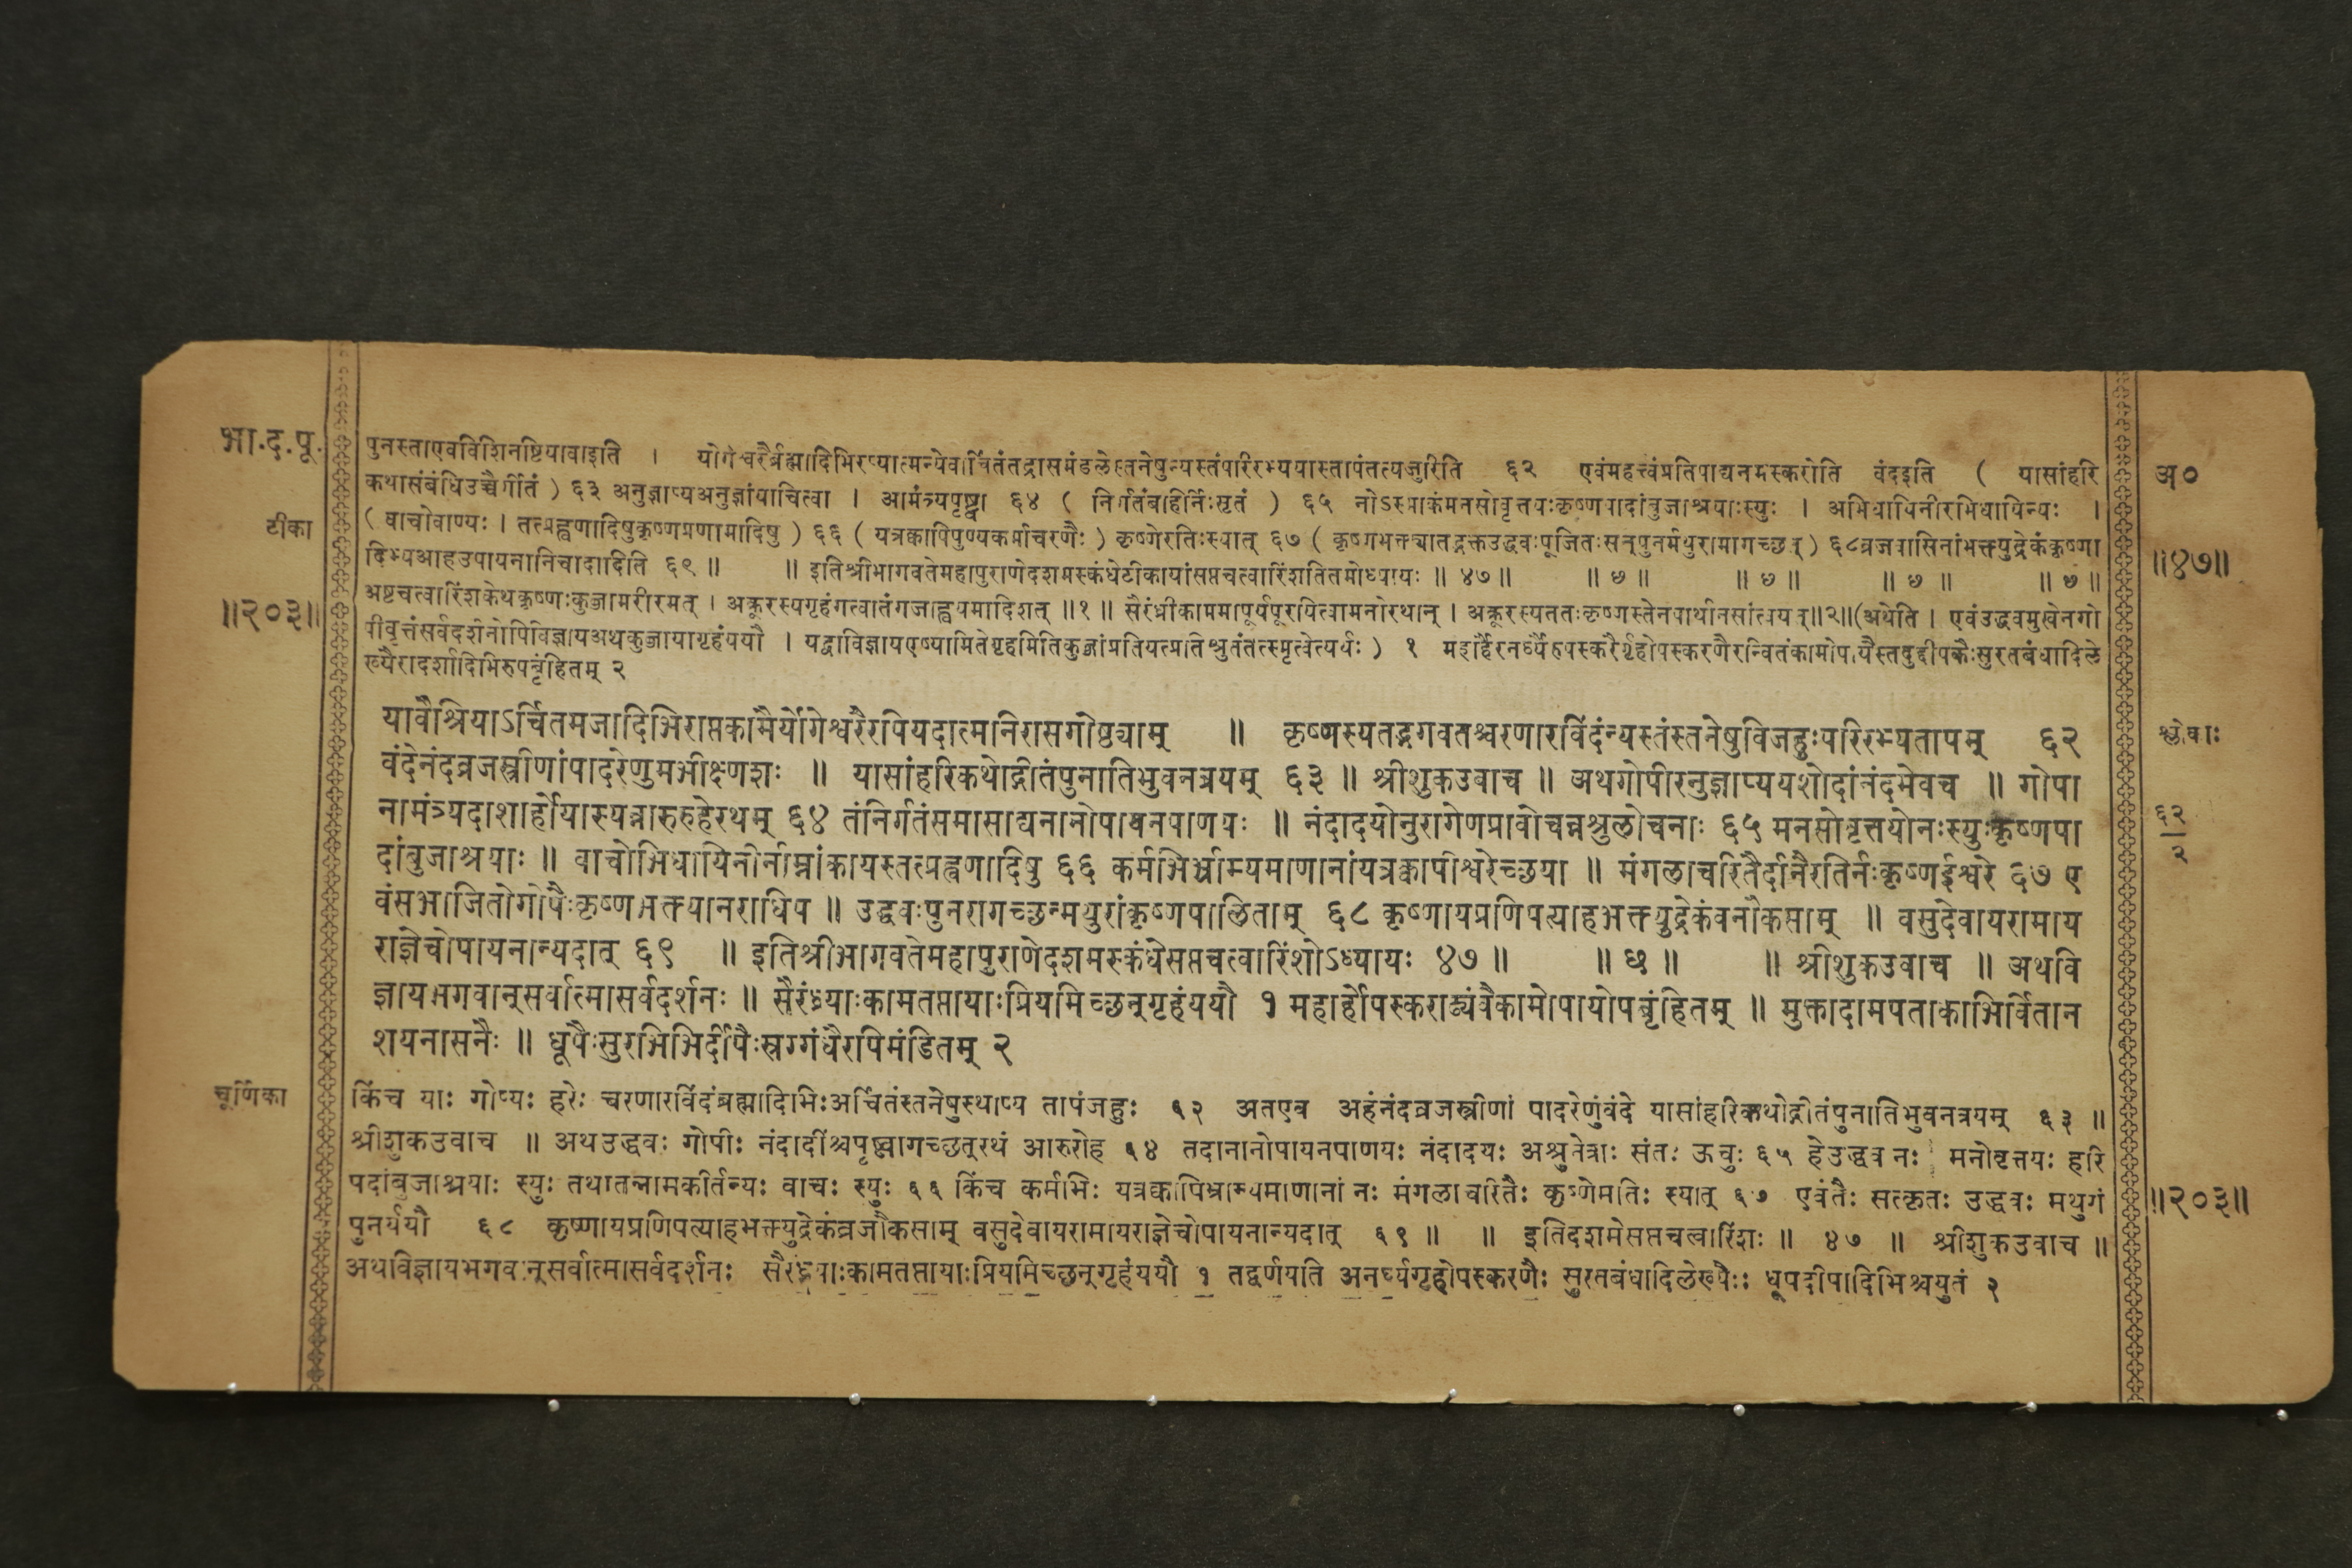 भा.द.पू.
टीका
॥२०३॥
पुनस्ताएवविशिनष्टियावाइति । योगेश्वरैर्ब्रह्मादिभिरप्यात्मन्येवार्चितंतद्रासमंडलेस्तनेषुन्यस्तंपरिरभ्ययास्तापंतत्यजुरिति ६२ एवंमहत्त्वंप्रतिपाद्यनमस्करोति वंदइति ( यासांहरि
कथासंबंधिउच्चैर्गीतं ) ६३ अनुज्ञाप्यअनुज्ञांयाचित्वा । आमंत्र्यपृष्ट्वा ६४ ( निर्गतंबहिर्निःसृतं ) ६५ नोऽस्माकंमनसोवृत्तयःकृष्णपादांबुजाश्रयाःस्युः । अभिधायिनीरभिधायिन्यः ।
( वाचोवाण्यः । तत्प्रह्वणादिषुकृष्णप्रणामादिषु ) ६६ ( यत्रक्वापिपुण्यकर्माचरणैः ) कृष्णेरतिःस्यात् ६७ ( कृष्णभक्त्यातद्भक्तउद्धवःपूजितःसन्पुनर्मथुरामागच्छत् ) ६८व्रजवासिनांभक्त्युद्रेकंकृष्णा
दिभ्यआहउपायनानिचादादिति ६९ ॥ ॥ इतिश्रीभागवतेमहापुराणेदशमस्कंधेटीकायांसप्तचत्वारिंशतितमोध्यायः ॥ ४७ ॥ ॥ ७ ॥ ॥ ७ ॥ ॥ ७ ॥ ॥ ७ ॥
अष्टचत्वारिंशकेथकृष्णःकुब्जामरीरमत् । अक्रूरस्यगृहंगत्वातंगजाह्वयमादिशत् ॥१॥ सैरंध्रीकाममापूर्यपूरयित्वामनोरथान् । अक्रूरस्यततःकृष्णस्तेनपार्थानसांत्वयत्॥२॥(अथेति । एवंउद्धवमुखेनगो
पीवृत्तंसर्वदर्शनोपिविज्ञायअथकुब्जायागृहंययौ । यद्वाविज्ञायएष्यामितेगृहमितिकुब्जांप्रतियत्प्रतिश्रुतंतत्स्मृत्वेत्यर्थः ) १ महार्हैरनर्घ्यैरुपस्करैर्गृहोपस्करणैरन्वितंकामोपायैस्तदुद्दीपकैःसुरतबंधादिले
ख्यैरादर्शादिभिरुपबृंहितम् २
यावैश्रियाऽर्चितमजादिभिराप्तकामैर्योगेश्वरैरपियदात्मनिरासगोष्ठ्याम् ॥ कृष्णस्यतद्भगवतश्चरणारविंदंन्यस्तंस्तनेषुविजहुःपरिरभ्यतापम् ६२
वंदेनंदव्रजस्त्रीणांपादरेणुमभीक्ष्णशः ॥ यासांहरिकथोद्गीतंपुनातिभुवनत्रयम् ६३ ॥ श्रीशुकउवाच ॥ अथगोपीरनुज्ञाप्ययशोदांनंदमेवच ॥ गोपा
नामंत्र्यदाशार्होयास्यन्नारुरुहेरथम् ६४ तंनिर्गतंसमासाद्यनानोपायनपाणयः ॥ नंदादयोनुरागेणप्रावोचन्नश्रुलोचनाः ६५ मनसोवृत्तयोनःस्युःकृष्णपा
दांबुजाश्रयाः ॥ वाचोभिधायिनीर्नाम्नांकायस्तत्प्रह्वणादिषु ६६ कर्मभिर्भ्राम्यमाणानांयत्रक्वापीश्वरेच्छया ॥ मंगलाचरितैर्दानैरतिर्नःकृष्णईश्वरे ६७ ए
वंसभाजितोगोपैःकृष्णभक्त्यानराधिप ॥ उद्धवःपुनरागच्छन्मथुरांकृष्णपालिताम् ६८ कृष्णायप्रणिपत्याहभक्त्युद्रेकंवनौकसाम् ॥ वसुदेवायरामाय
राज्ञेचोपायनान्यदात् ६९ ॥ इतिश्रीभागवतेमहापुराणेदशमस्कंधेसप्तचत्वारिंशोऽध्यायः ४७ ॥ ॥ छ ॥ ॥ श्रीशुकउवाच ॥ अथवि
ज्ञायभगवान्सर्वात्मासर्वदर्शनः ॥ सैरंध्र्याःकामतप्तायाःप्रियमिच्छन्गृहंययौ १ महार्होपस्कराढ्यंवैकामोपायोपबृंहितम् ॥ मुक्तादामपताकाभिर्वितान
शयनासनैः ॥ धूपैःसुरभिभिर्दीपैःस्रग्गंधैरपिमंडितम् २
चूर्णिका
किंच याः गोप्यः हरेः चरणारविंदंब्रह्मादिभिःअर्चितंस्तनेषुस्थाप्य तापंजहुः ६२ अतएव अहंनंदव्रजस्त्रीणां पादरेणुंवंदे यासांहरिकथोद्गीतंपुनातिभुवनत्रयम् ६३ ॥
श्रीशुकउवाच ॥ अथउद्धवः गोपीः नंदादींश्चपृष्ट्वागच्छन्रथं आरुरोह ६४ तदानानोपायनपाणयः नंदादयः अश्रुनेत्राः संतः ऊचुः ६५ हेउद्धव नः मनोवृत्तयः हरि
पदांबुजाश्रयाः स्युः तथातन्नामकीर्तन्यः वाचः स्युः ६६ किंच कर्मभिः यत्रक्वापिभ्राम्यमाणानां नः मंगलाचरितैः कृष्णेमतिः स्यात् ६७ एवंतैः सत्कृतः उद्धवः मथुरां
पुनर्ययौ ६८ कृष्णायप्रणिपत्याहभक्त्युद्रेकंव्रजौकसाम् वसुदेवायरामायराज्ञेचोपायनान्यदात् ६९ ॥ ॥ इतिदशमेसप्तचत्वारिंशः ॥ ४७ ॥ श्रीशुकउवाच ॥
अथविज्ञायभगवान्सर्वात्मासर्वदर्शनः सैरंध्र्याःकामतप्तायाःप्रियमिच्छन्गृहंययौ १ तद्वर्णयति अनर्घ्यगृहोपस्करणैः सुरतबंधादिलेख्यैः धूपदीपादिभिश्चयुतं २
अ०
॥४७॥
६२
२
॥२०३॥